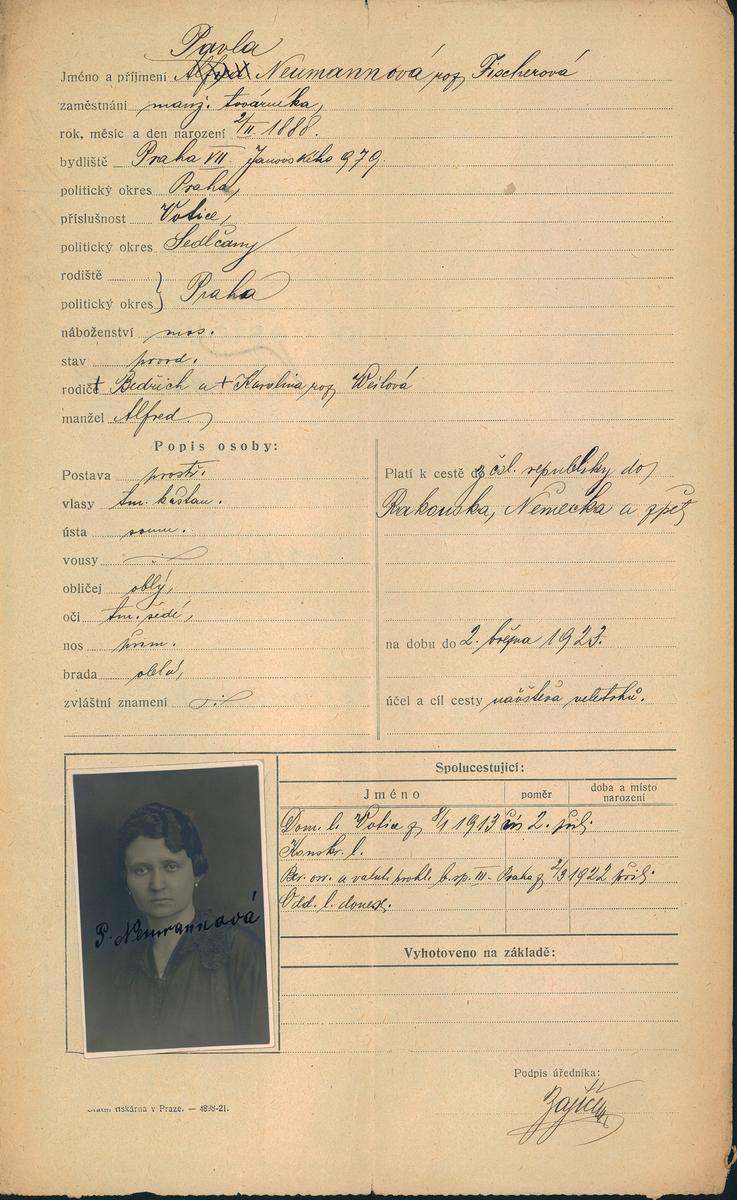 Pavla
Jméno a příjmení Alfred Neumannová roz Fischerová
zaměstnání manž. továrníka,
rok, měsíc a den narození 2/II. 1888.
bydliště Praha VII. Janovského 979.
politický okres Praha,
příslušnost Votice,
politický okres Sedlčany
rodiště
politický okres } Praha
náboženství mos.
stav provd.
rodiče † Bedřich a † Karolina roz Weilová
manžel Alfred.
Popis osoby:
Postava prostř.
vlasy tm. kaštan.
ústa soum.
vousy
obličej oblý,
oči tm. šedé,
nos přím.
brada oblá,
zvláštní znamení
Platí k cestě do z čsl. republiky do
Rakouska, Německa a zpět
na dobu do 2. března 1923.
účel a cíl cesty návštěva veletrhů.
Spolucestující:
Jméno poměr doba a místo narození
Dom. l. Votice z 8/1 1913 čís 2. přil.
Konskr. l.
Ber. or. a valut. prohl. b. sp. III - Praha z 2/3 1922 přil.
Odd. l. donesl.
P. Neumannová
Vyhotoveno na základě:
Podpis úředníka:
Státní tiskárna v Praze. — 4898-21.